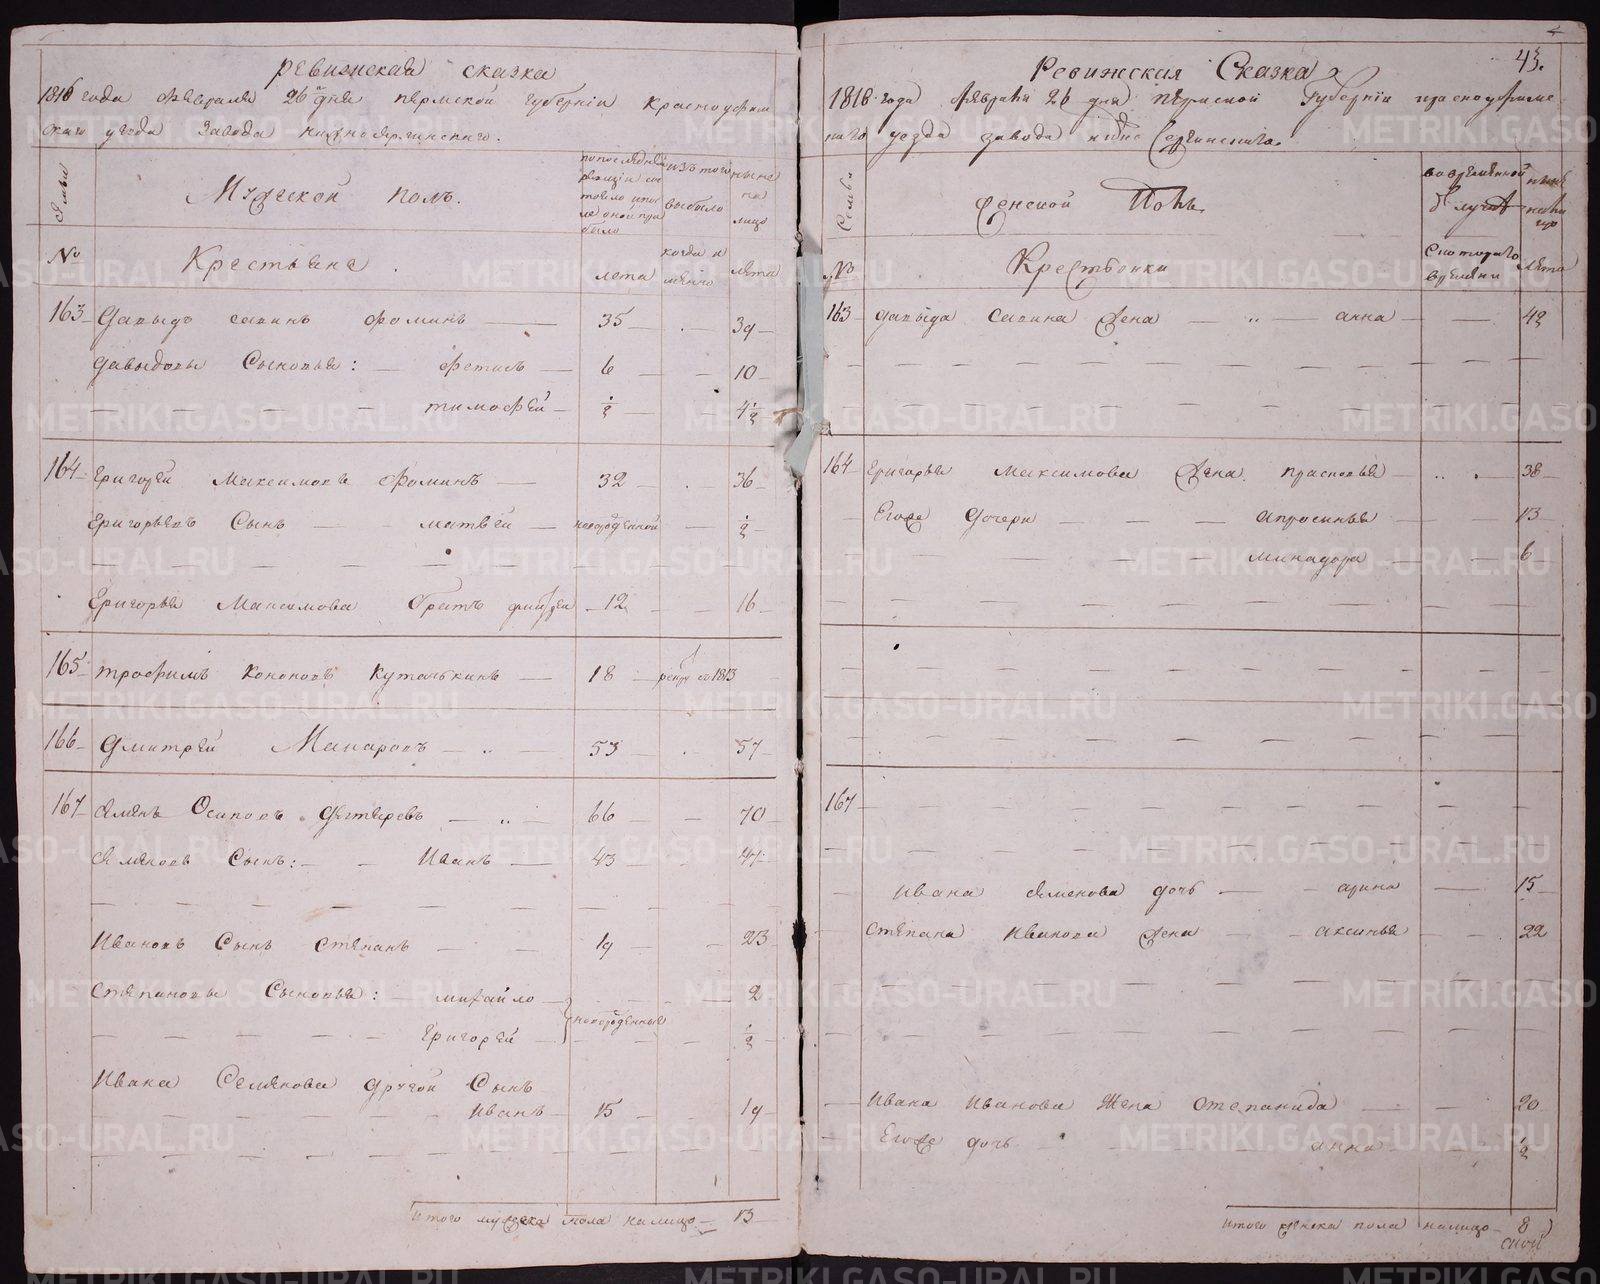 ревижская сказка
1816 года февраля 26 дня пермской губернiи красноуфим
скаго уезда завода нижносергинскаго.
Семьи
Мужеской полъ.
по последней ревизiи состояло и после оной прибыло
изъ того выбыло
ныне на лицо
№
Крестьяне.
лета
когда и
лета
163 Давыдъ савинъ фоминъ 35 39
Давыдовы Сыновья: фетисъ 6 10
тимофей ½ 4½
164 Григорей Максимовъ Фоминъ 32 36
Григорьевъ Сынъ матвей новорожденной ½
Григорья Максимова братъ 12 16
165 трофимъ Кононовъ 18 рекру въ 1813
166 Дмитрей Макаровъ 53 57
167 Семенъ Осиповъ Дегтяревъ 66 70
Семеновъ Сынъ: Иванъ 43 47
Ивановъ Сынъ степанъ 19 23
Степановы Сыновья: михайло 2
новорожденные
Григорей ½
Ивана Семенова другой Сынъ
Иванъ 15 19
итого мужеска пола налицо 13
43.
Ревижская Сказка
1816 года февраля 26 дня пермской Губернiи красноуфимс
каго уезда завода нижно Сергинскаго.
Семьи
Женской Полъ
во временной отлучке
ныне налицо
№
Крестьянки
Скотораго времени
лета
163 Давыда Савина Жена анна 42
164 Григорья максимова Жена прасковья 38
Егоже Дочери апросинья 13
минадора 6
167
Ивана Семенова дочь арина 15
Степана Иванова Жена аксинья 22
Ивана Иванова Жена степанида 20
Егоже дочь анна ½
итого женска пола налицо 8
METRIKI.GASO-URAL.RU